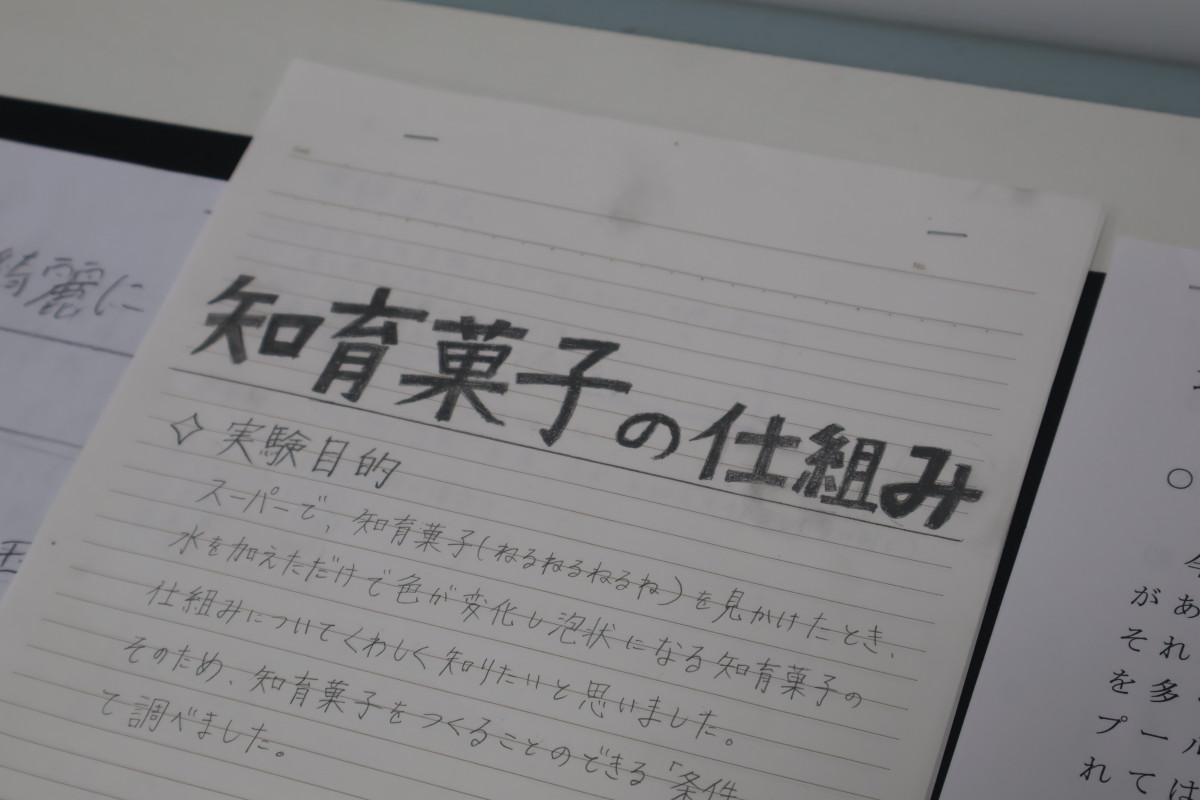 綺麗に
知育菓子の仕組み
✧ 実験目的
スーパーで、知育菓子(ねるねるねるね)を見かけたとき、
水を加えただけで色が変化し泡状になる知育菓子の
仕組みについてくわしく知りたいと思いました。
そのため、知育菓子をつくることのできる「条件
て調べました。
○
があ
それ
を多
プール
れては